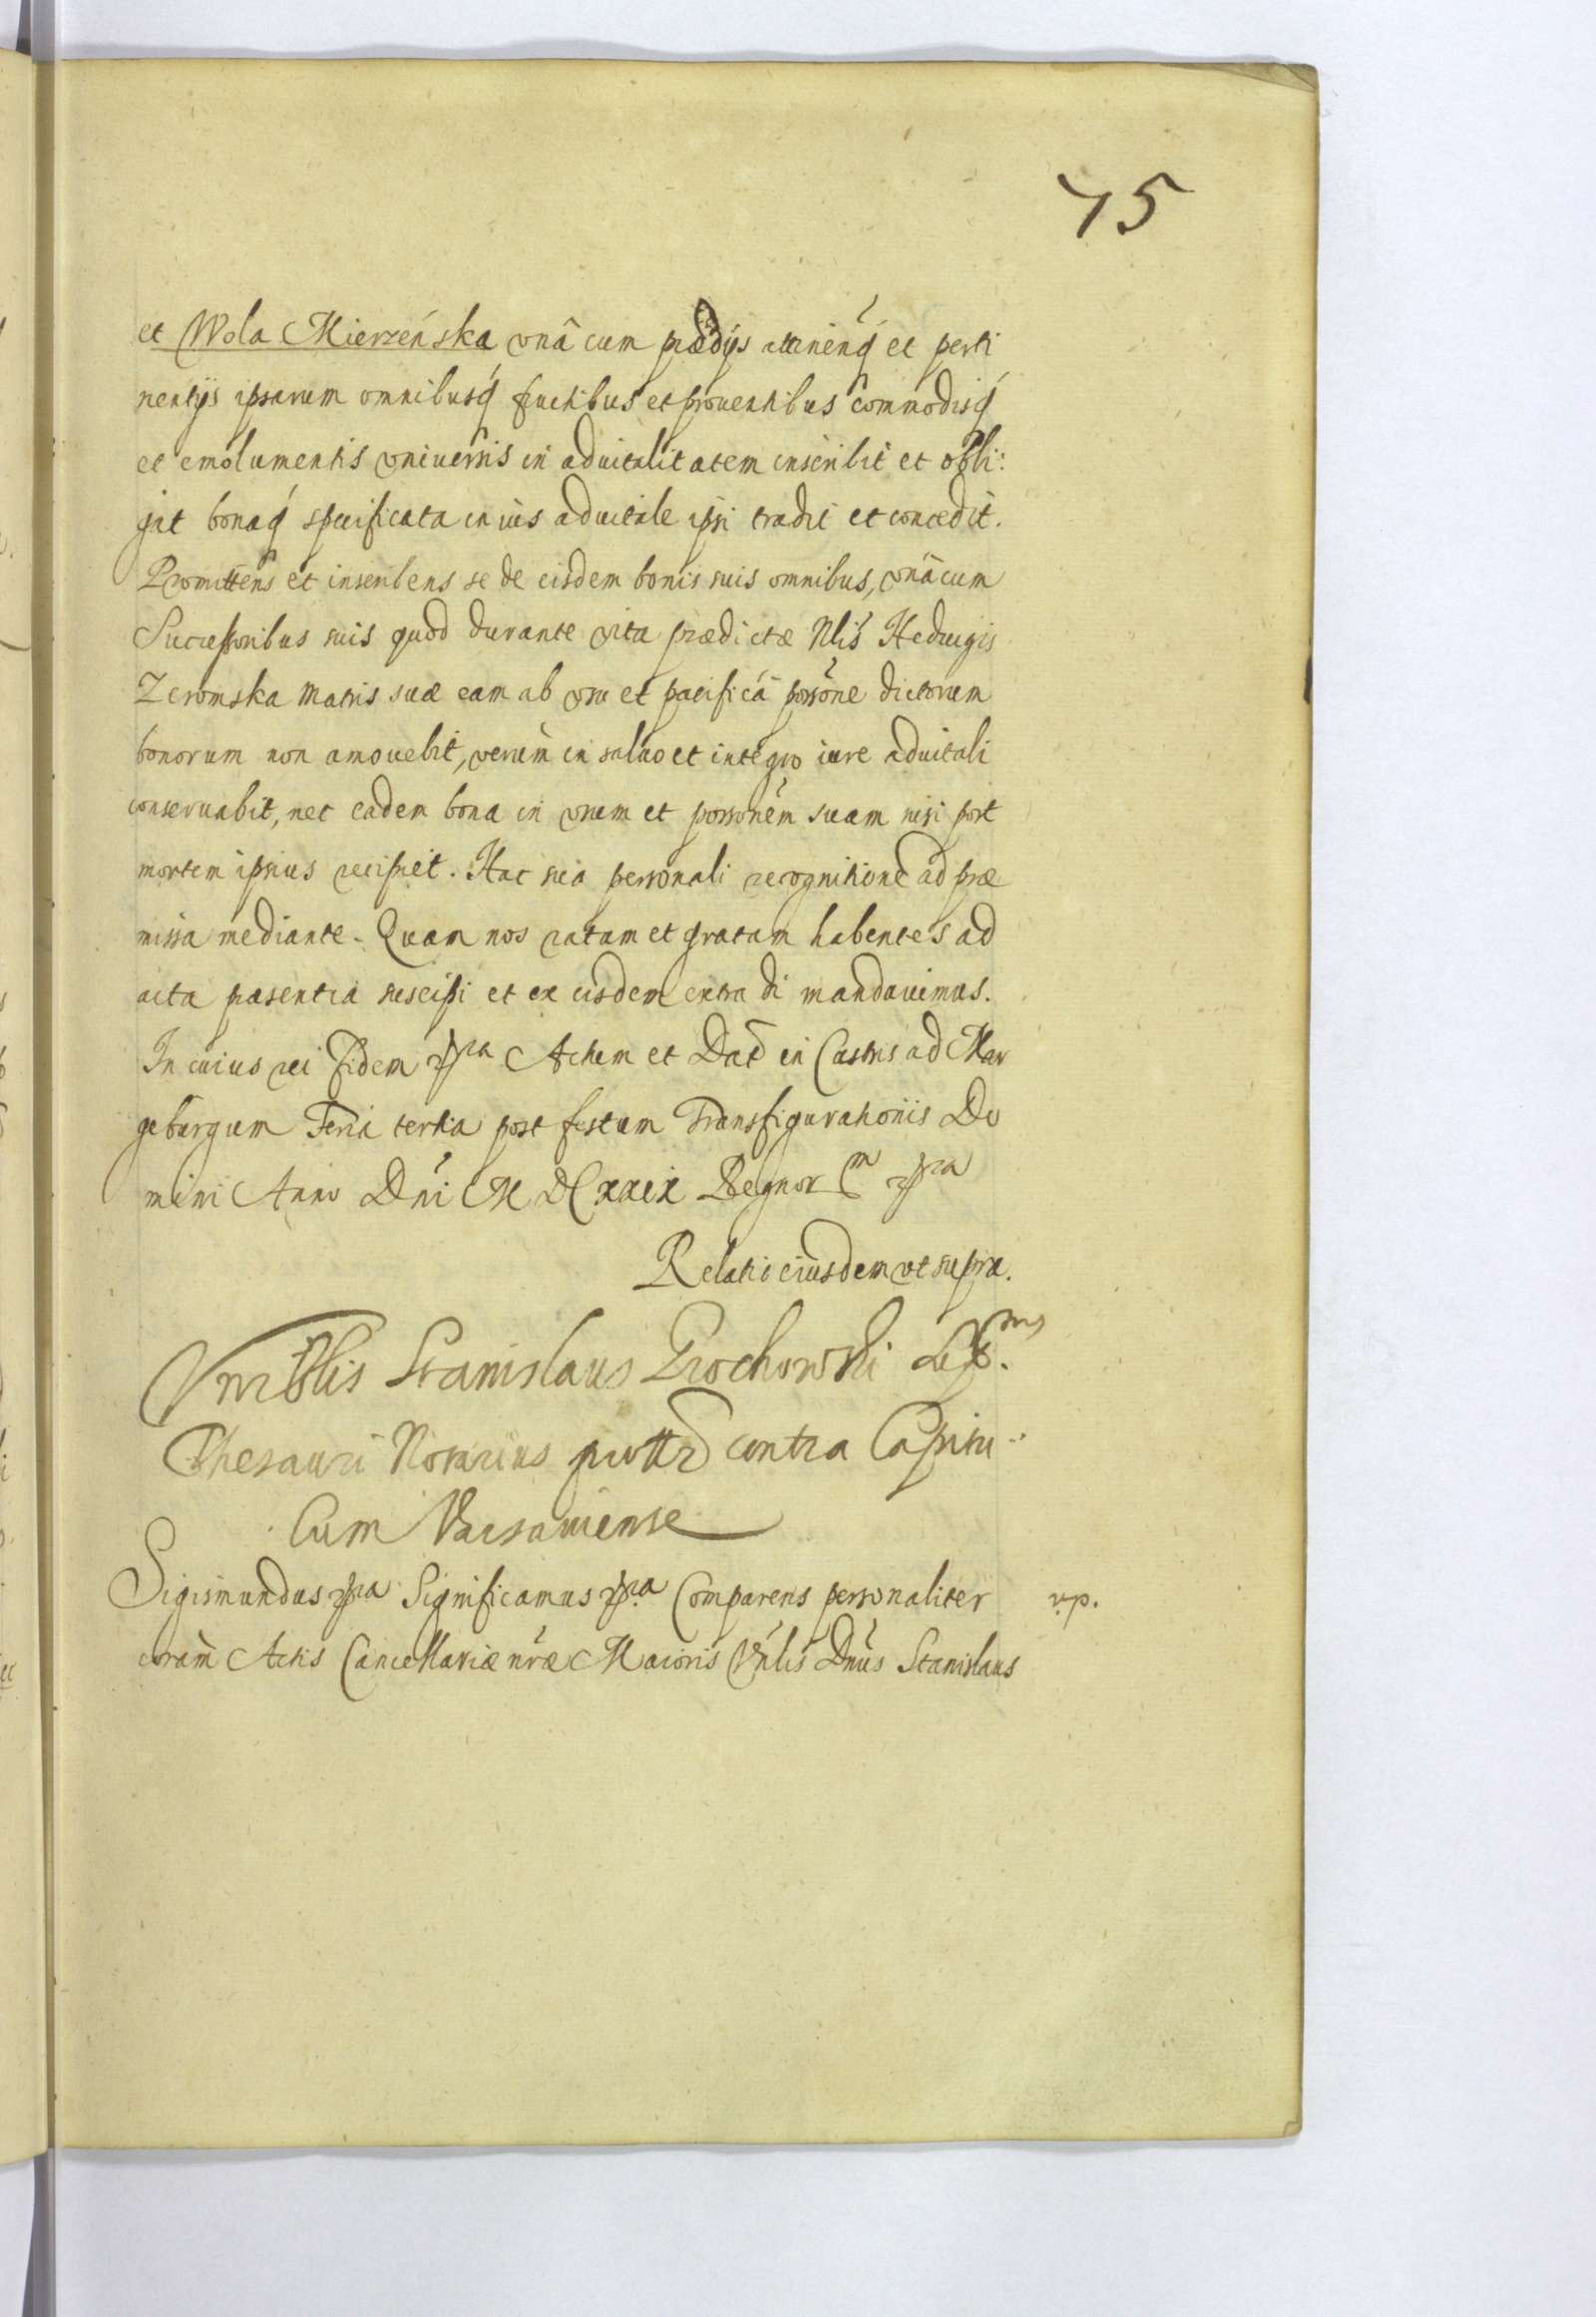 75
et Wola Mierzeńska vnâ cum prædijs attinenq́ et perti
nentijs ipsarum omnibusq́ fructibus et prouentibus commodisq́
et emolumentis vniuersis in aduitalitatem inscribit et obli:
gat bonaq́ specificata in ius aduitale ipsi tradit et concedit.
Promittens et inscribens se de eisdem bonis suis omnibus, vnâcum
Successoribus suis quod durante vita prædictæ Nlis Heduigis
Zeromska matris suæ eam ab vsu et pacificá possone dictorum
bonorum non amouebit, verùm in saluo et integro iure aduitali
conseruabit, nec eadem bona in vsum et possonem suam nisi post
mortem ipsius recipiet. Hac sua personali recognitione ad præ
missa mediante. Quam nos ratam et gratam habentes ad
acta præsentia suscipi et ex eisdem extradi mandauimus.
In cuius rei fidem Actum et Dat in Castris ad Mar
geburgum Feria tertia post festum Transfigurationis Do
mini Anno Dni M DCxxix Regnor
Relatio eiusdem vt supra.
Stanislaus Grochowski
Thesauri Notarius contra Capitu
lum Varsauiense
Sigismundus Significamus Comparens personaliter
coram Actis Cancellariæ nræ Maioris Gnlis Dnus Stanislaus